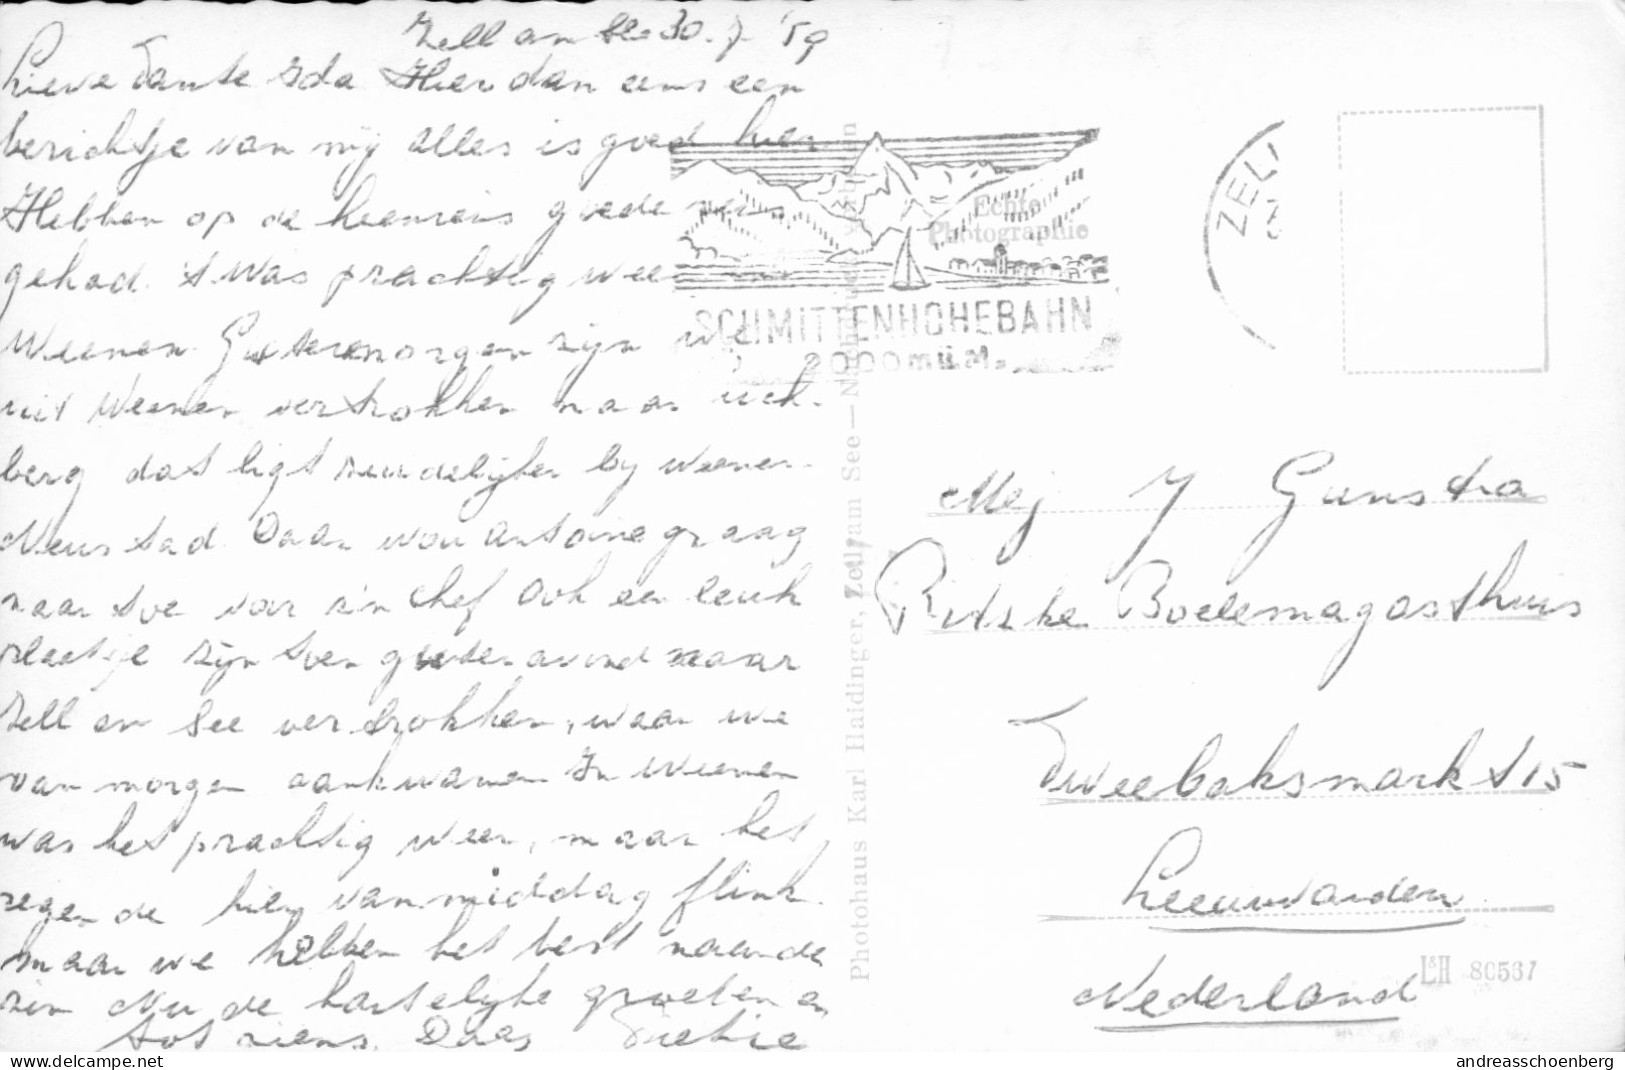 Zell am See 30.7.'59
Lieve Tante Ida Hier dan eens een
berichtje van mij alles is goed hier
Hebben op de heenreis goede reis
gehad. 't Was prachtig weer in
Weenen. Gisterenmorgen zijn we
uit Weenen vertrokken naar
berg dat ligt zuidelijker bij Weener-
Neustad. Daar wou Antoine graag
naar toe voor z'n chef Ook een leuk
plaatsje zijn toen gisterenavond naar
Zell am See vertrokken, waar we
vanmorgen aankwamen In Weenen
was het prachtig weer, maar het
regende hier vanmiddag flink.
maar we hebben het best naar de
zin Nu de hartelijke groeten en
tot ziens. Daag
Echte
Photographie
SCHMITTENHÖHEBAHN
2000 m ü. M.
ZELL
Photohaus Karl Haidinger, Zell am See — Nachdruck verboten
Mej Y Gunstra
Ritske Boelemagasthuis
Tweebaksmarkt 15
Leeuwarden
Nederland
L&H 80567
www.delcampe.net
andreasschoenberg